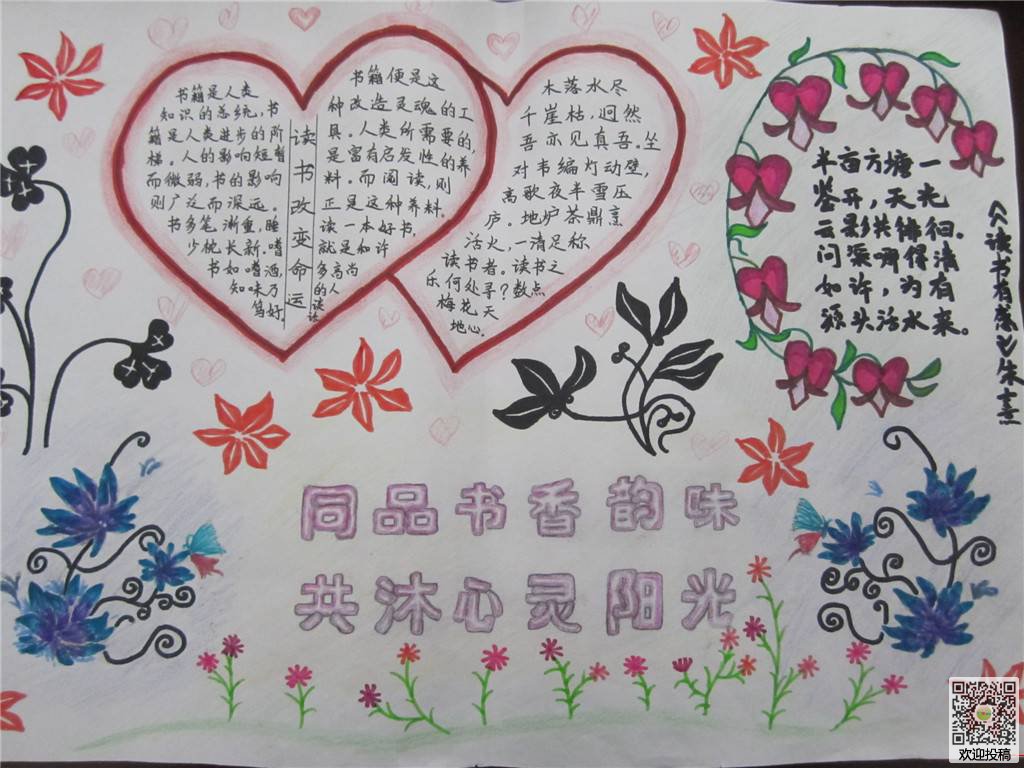 书籍是人类
知识的总统,书
籍是人类进步的阶
梯。人的影响短暂
而微弱,书的影响
则广泛而深远。
书多笔渐重,睡
少枕长新。嗜
书如嗜酒,
知味乃
笃好
读书改变命运
书籍便是这
种改造灵魂的工
具。人类所需要的,
是富有启发性的养
料。而阅读,则
正是这种养料。
读一本好书,
就是和许
多高尚
的人
谈话
木落水尽
千崖枯,迥然
吾亦见真吾。坐
对韦编灯动壁,
高歌夜半雪压
庐。地炉茶鼎烹
活火,一清足称
读书者。读书之
乐何处寻?数点
梅花天
地心。
半亩方塘一
鉴开,天光
云影共徘徊。
问渠哪得清
如许,为有
源头活水来。
《读书有感》朱熹
同品书香韵味
共沐心灵阳光
欢迎投稿